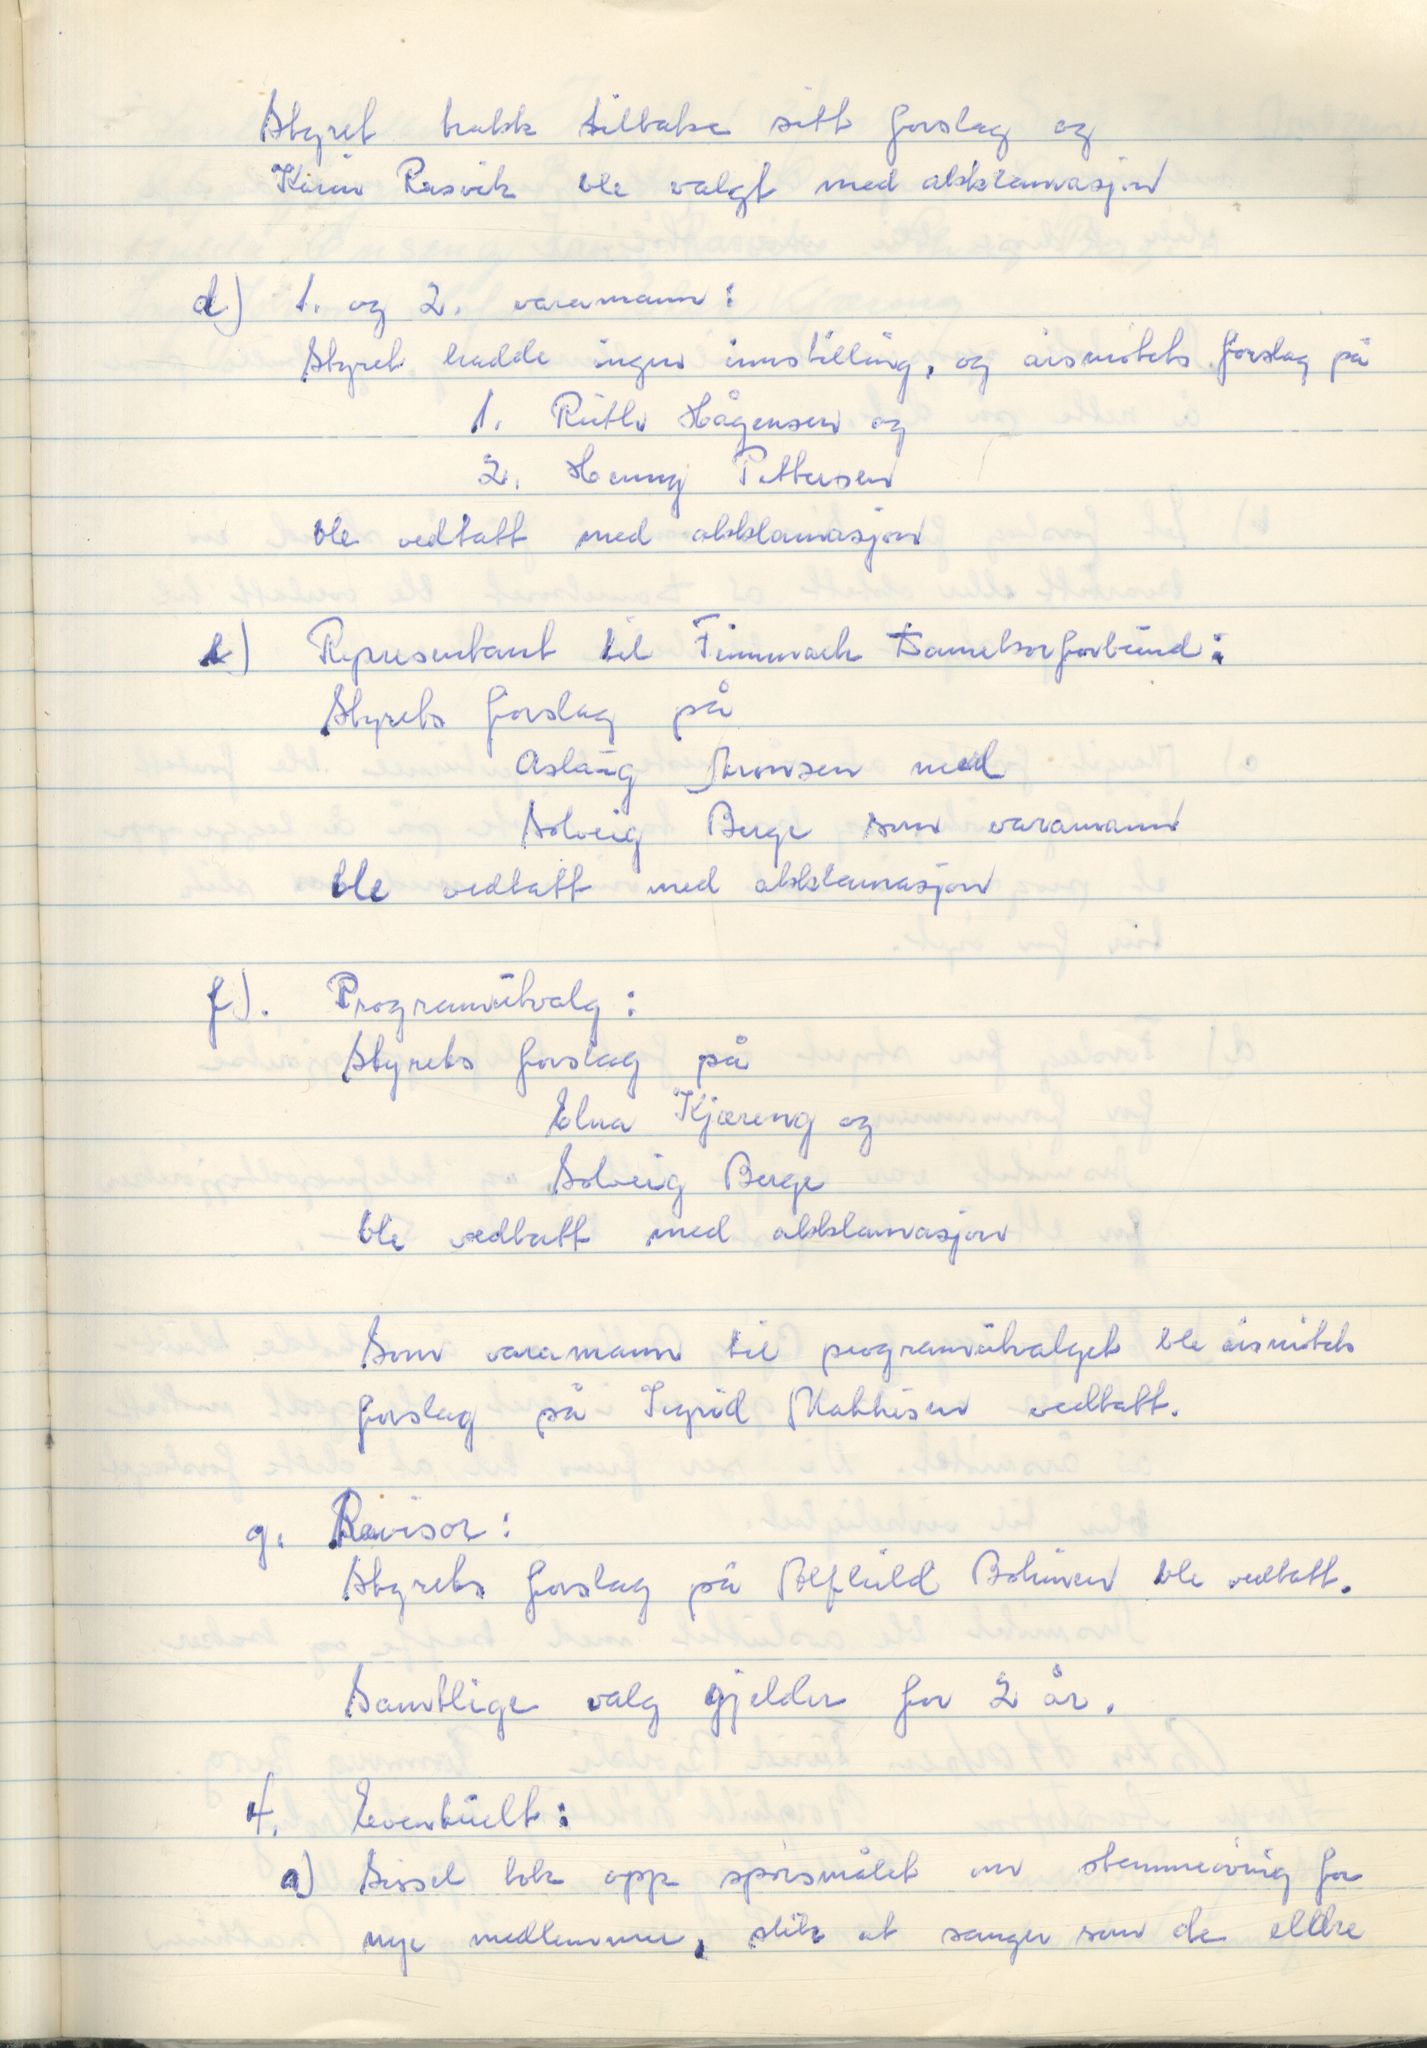 Styret trakk tilbake sitt forslag og
Karin Rasvik ble valgt med akklamasjon
d) 1. og 2. varamann:
Styret hadde ingen innstilling, og årsmøtets forslag på
1. Ruth Hågensen og
2. Henny Pettersen
ble vedtatt med akklamasjon
e) Representant til Finnmark Damekorforbund:
Styrets forslag på
Aslaug Aronsen med
Solveig Berge som varamann
ble vedtatt med akklamasjon
f). Programutvalg:
Styrets forslag på
Elna Kjæreng og
Solveig Berge
ble vedtatt med akklamasjon
Som varamann til programutvalget ble årsmøtets
forslag på Ingrid Mathisen vedtatt.
g. Revisor:
Styrets forslag på Alfhild ble vedtatt.
Samtlige valg gjelder for 2 år.
4. Eventuelt:
a) Sissel tok opp spørsmålet om stemmeøving for
nye medlemmer, slik at sanger som de eldre